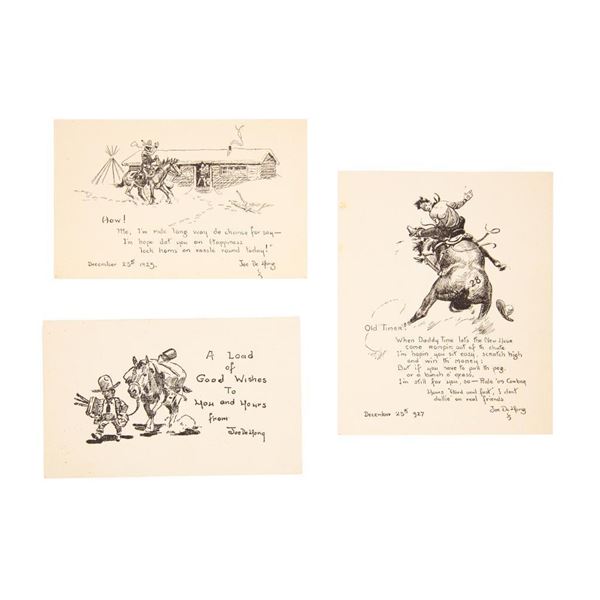 How!
Me, I'm ride long way de chance for say—
I'm hope dat you an Happiness
Tech horns on rassle round today!
December 25th 1925.
Joe De Yong
A Load
of
Good Wishes
To
You and Yours
from
Joe De Yong
Old Timer!
When Daddy Time lets the New Year
come rompin out of th chute
I'm hopin you sit easy, scratch high
and win th money:
But if you have to pull th peg
or a bunch o' grass,
I'm still for you, so — Ride 'im Cowboy
Yours "Hard and fast", I don't
dallie on real friends
December 25th 1927
Joe De Yong
28